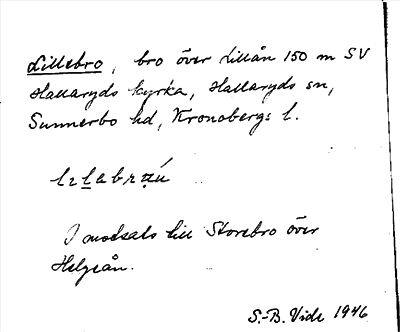 Lillebro, bro över Lillån 150 m SV
Hallaryds kyrka, Hallaryds sn,
Sunnerbo hd, Kronobergs l.
I motsats till Storebro över
Helgeån.
S.-B. Vide 1946